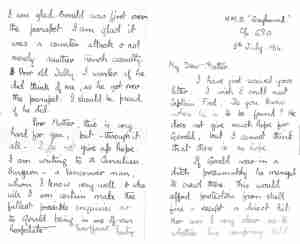 I am glad Gerald was first over
the parapet. I am glad it
was a counter attack & not
merely another trench casualty.
Poor old Jelly. I wonder if he
did think of me, as he got over
the parapet. I should be proud
if he did.
Poor Mother, this is very
hard for you, but through it
all - I do not give up hope
I am writing to a Canadian
Surgeon - a Vancouver man,
whom I know very well & who
will I am certain make the
fullest possible enquiries as
to Gerald being in one of our
hospitals.
H.M.S. "Greyhound"
c/o G.P.O.
5th July 1916
My Dear Mother
I have just received your
letter. I wish I could meet
Captain Ford. Do you know
where he is to be found? He
does not give much hope for
Gerald, but I cannot think
that there is no hope.
If Gerald was in a
ditch presumably he managed
to crawl there. This would
afford protection from shell
fire - except a direct hit.
Nor am I very clear as to
whether his company